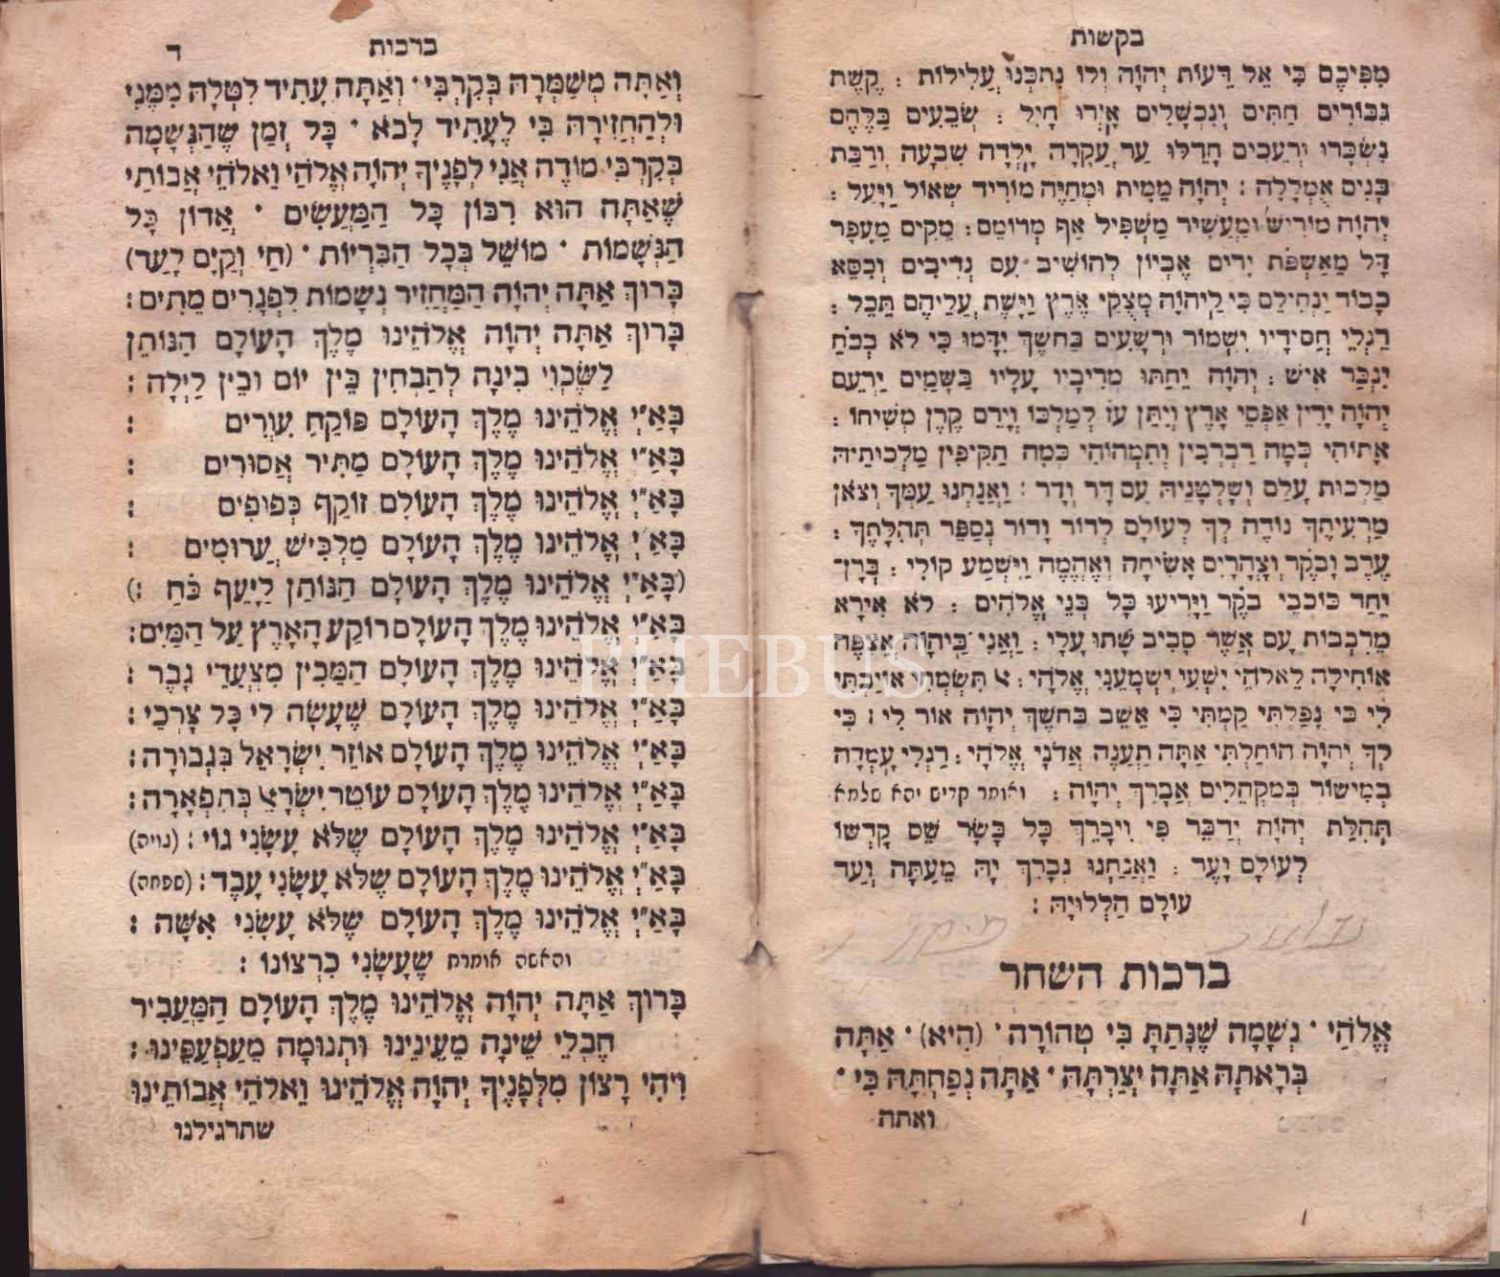 בקשות
מִפִּיכֶם כִּי אֵל דֵּעוֹת יְהֹוָה וְלוֹ נִתְכְּנוּ עֲלִילוֹת : קֶשֶׁת
גִּבּוֹרִים חַתִּים וְנִכְשָׁלִים אָזְרוּ חָיִל : שְׂבֵעִים בַּלֶּחֶם
נִשְׂכָּרוּ וּרְעֵבִים חָדֵלּוּ עַד עֲקָרָה יָלְדָה שִׁבְעָה וְרַבַּת
בָּנִים אֻמְלָלָה : יְהֹוָה מֵמִית וּמְחַיֶּה מוֹרִיד שְׁאוֹל וַיָּעַל :
יְהֹוָה מוֹרִישׁ וּמַעֲשִׁיר מַשְׁפִּיל אַף מְרוֹמֵם : מֵקִים מֵעָפָר
דָּל מֵאַשְׁפֹּת יָרִים אֶבְיוֹן לְהוֹשִׁיב עִם נְדִיבִים וְכִסֵּא
כָבוֹד יַנְחִילֵם כִּי לַיְהֹוָה מְצֻקֵי אֶרֶץ וַיָּשֶׁת עֲלֵיהֶם תֵּבֵל :
רַגְלֵי חֲסִידָיו יִשְׁמוֹר וּרְשָׁעִים בַּחֹשֶׁךְ יִדָּמּוּ כִּי לֹא בְכֹחַ
יִגְבַּר אִישׁ : יְהֹוָה יֵחַתּוּ מְרִיבָיו עָלָיו בַּשָּׁמַיִם יַרְעֵם
יְהֹוָה יָדִין אַפְסֵי אָרֶץ וְיִתֶּן עֹז לְמַלְכּוֹ וְיָרֵם קֶרֶן מְשִׁיחוֹ :
אָתוֹהִי כְּמָה רַבְרְבִין וְתִמְהוֹהִי כְּמָה תַקִּיפִין מַלְכוּתֵיהּ
מַלְכוּת עָלַם וְשָׁלְטָנֵיהּ עִם דָּר וְדָר : וַאֲנַחְנוּ עַמְּךָ וְצֹאן
מַרְעִיתֶךָ נוֹדֶה לְּךָ לְעוֹלָם לְדוֹר וָדוֹר נְסַפֵּר תְּהִלָּתֶךָ :
עֶרֶב וָבֹקֶר וְצָהֳרַיִם אָשִׂיחָה וְאֶהֱמֶה וַיִּשְׁמַע קוֹלִי : בְּרָן־
יַחַד כּוֹכְבֵי בֹקֶר וַיָּרִיעוּ כָּל בְּנֵי אֱלֹהִים : לֹא אִירָא
מֵרִבְבוֹת עָם אֲשֶׁר סָבִיב שָׁתוּ עָלָי : וַאֲנִי בַּיהֹוָה אֲצַפֶּה
אוֹחִילָה לֵאלֹהֵי יִשְׁעִי יִשְׁמָעֵנִי אֱלֹהָי : אַל תִּשְׂמְחִי אוֹיַבְתִּי
לִי כִּי נָפַלְתִּי קַמְתִּי כִּי אֵשֵׁב בַּחֹשֶׁךְ יְהֹוָה אוֹר לִי : כִּי
לְךָ יְהֹוָה הוֹחָלְתִּי אַתָּה תַעֲנֶה אֲדֹנָי אֱלֹהָי : רַגְלִי עָמְדָה
בְמִישׁוֹר בְּמַקְהֵלִים אֲבָרֵךְ יְהֹוָה : ואומר קדיש יהא שלמא
תְּהִלַּת יְהֹוָה יְדַבֵּר פִּי וִיבָרֵךְ כָּל בָּשָׂר שֵׁם קָדְשׁוֹ
לְעוֹלָם וָעֶד : וַאֲנַחְנוּ נְבָרֵךְ יָהּ מֵעַתָּה וְעַד
עוֹלָם הַלְלוּיָהּ :
ברכות השחר
אֱלֹהַי · נְשָׁמָה שֶׁנָּתַתָּ בִּי טְהוֹרָה · (הִיא) · אַתָּה
בְרָאתָהּ אַתָּה יְצַרְתָּהּ · אַתָּה נְפַחְתָּהּ בִּי ·
ואתה
ברכות ד
וְאַתָּה מְשַׁמְּרָהּ בְּקִרְבִּי · וְאַתָּה עָתִיד לִטְּלָהּ מִמֶּנִּי
וּלְהַחֲזִירָהּ בִּי לֶעָתִיד לָבֹא · כָּל זְמַן שֶׁהַנְּשָׁמָה
בְּקִרְבִּי מוֹדֶה אֲנִי לְפָנֶיךָ יְהֹוָה אֱלֹהַי וֵאלֹהֵי אֲבוֹתַי
שֶׁאַתָּה הוּא רִבּוֹן כָּל הַמַּעֲשִׂים · אֲדוֹן כָּל
הַנְּשָׁמוֹת · מוֹשֵׁל בְּכָל הַבְּרִיּוֹת · (חַי וְקַיָּם לָעַד)
בָּרוּךְ אַתָּה יְהֹוָה הַמַּחֲזִיר נְשָׁמוֹת לִפְגָרִים מֵתִים :
בָּרוּךְ אַתָּה יְהֹוָה אֱלֹהֵינוּ מֶלֶךְ הָעוֹלָם הַנּוֹתֵן
לַשֶּׂכְוִי בִינָה לְהַבְחִין בֵּין יוֹם וּבֵין לַיְלָה :
בָּאַ״יְ אֱלֹהֵינוּ מֶלֶךְ הָעוֹלָם פּוֹקֵחַ עִוְרִים :
בָּאַ״יְ אֱלֹהֵינוּ מֶלֶךְ הָעוֹלָם מַתִּיר אֲסוּרִים :
בָּאַ״יְ אֱלֹהֵינוּ מֶלֶךְ הָעוֹלָם זוֹקֵף כְּפוּפִים :
בָּאַ״יְ אֱלֹהֵינוּ מֶלֶךְ הָעוֹלָם מַלְבִּישׁ עֲרוּמִים :
(בָּאַ״יְ אֱלֹהֵינוּ מֶלֶךְ הָעוֹלָם הַנּוֹתֵן לַיָּעֵף כֹּחַ :)
בָּאַ״יְ אֱלֹהֵינוּ מֶלֶךְ הָעוֹלָם רוֹקַע הָאָרֶץ עַל הַמַּיִם :
בָּאַ״יְ אֱלֹהֵינוּ מֶלֶךְ הָעוֹלָם הַמֵּכִין מִצְעֲדֵי גָבֶר :
בָּאַ״יְ אֱלֹהֵינוּ מֶלֶךְ הָעוֹלָם שֶׁעָשָׂה לִי כָּל צָרְכִּי :
בָּאַ״יְ אֱלֹהֵינוּ מֶלֶךְ הָעוֹלָם אוֹזֵר יִשְׂרָאֵל בִּגְבוּרָה :
בָּאַ״יְ אֱלֹהֵינוּ מֶלֶךְ הָעוֹלָם עוֹטֵר יִשְׂרָאֵל בְּתִפְאָרָה :
בָּאַ״יְ אֱלֹהֵינוּ מֶלֶךְ הָעוֹלָם שֶׁלֹּא עָשַׂנִי גוֹי : (גויה)
בָּאַ״יְ אֱלֹהֵינוּ מֶלֶךְ הָעוֹלָם שֶׁלֹּא עָשַׂנִי עָבֶד : (שפחה)
בָּאַ״יְ אֱלֹהֵינוּ מֶלֶךְ הָעוֹלָם שֶׁלֹּא עָשַׂנִי אִשָּׁה :
והאשה אומרת שֶׁעָשַׂנִי כִרְצוֹנוֹ :
בָּרוּךְ אַתָּה יְהֹוָה אֱלֹהֵינוּ מֶלֶךְ הָעוֹלָם הַמַּעֲבִיר
חֶבְלֵי שֵׁינָה מֵעֵינֵינוּ וּתְנוּמָה מֵעַפְעַפֵּינוּ :
וִיהִי רָצוֹן מִלְּפָנֶיךָ יְהֹוָה אֱלֹהֵינוּ וֵאלֹהֵי אֲבוֹתֵינוּ
שתרגילנו
PHEBUS